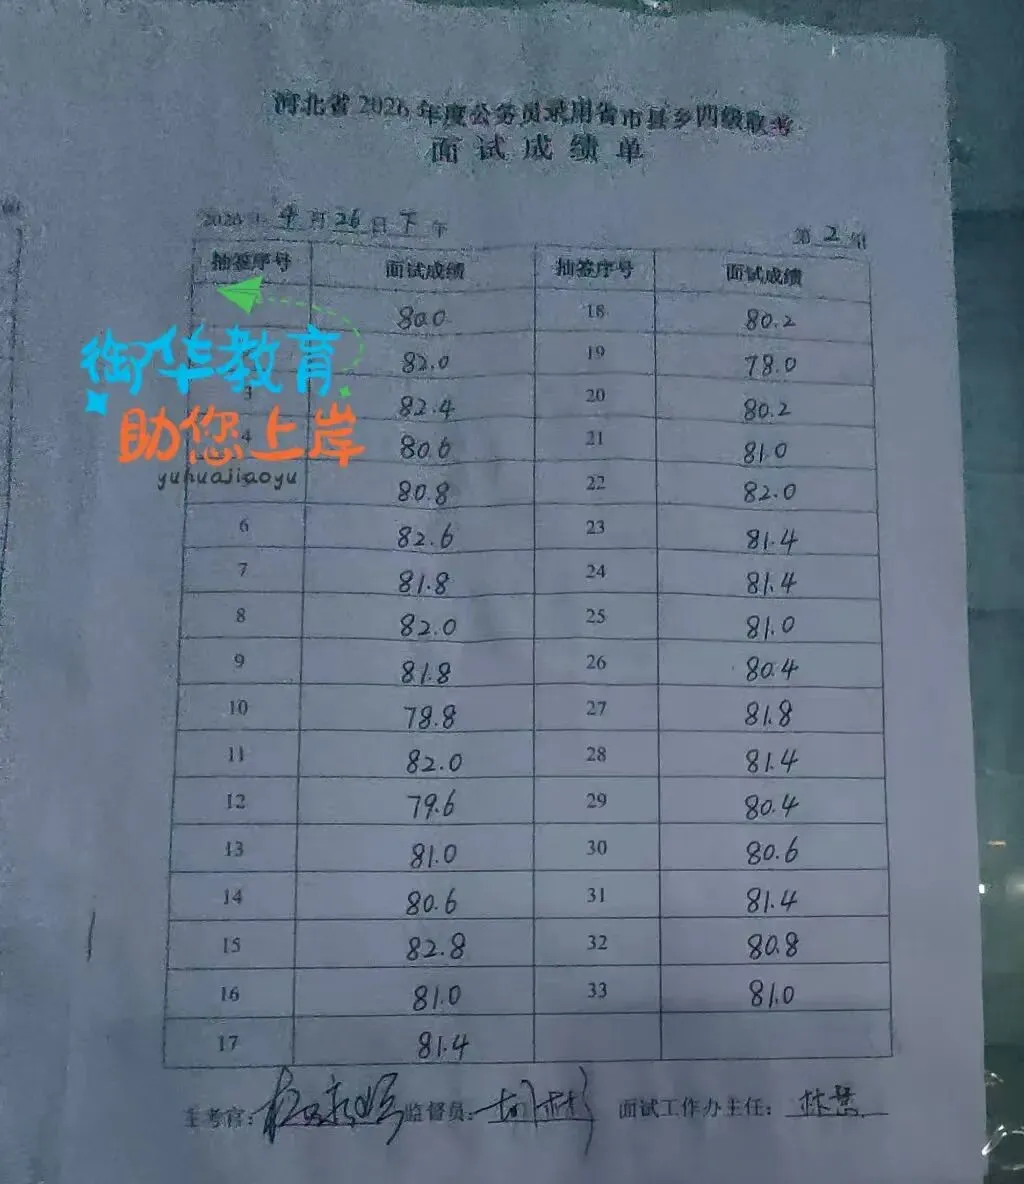 河北省 2026 年度公务员录用省市县乡四级联考
面试成绩单
2026年 4 月 26 日 下 午 第 2 组
抽签序号 面试成绩 抽签序号 面试成绩
80.0 18 80.2
82.0 19 78.0
3 82.4 20 80.2
4 80.6 21 81.0
80.8 22 82.0
6 82.6 23 81.4
7 81.8 24 81.4
8 82.0 25 81.0
9 81.8 26 80.4
10 78.8 27 81.8
11 82.0 28 81.4
12 79.6 29 80.4
13 81.0 30 80.6
14 80.6 31 81.4
15 82.8 32 80.8
16 81.0 33 81.0
17 81.4
主考官: 监督员: 面试工作办主任:
御华教育
助您上岸
yuhuajiaoyu